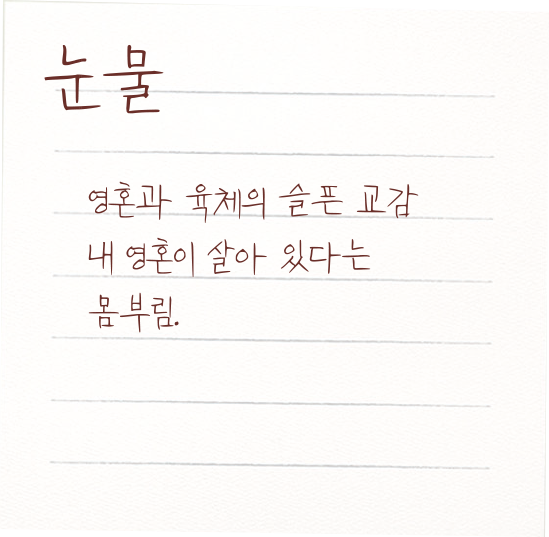 눈물
영혼과 육체의 슬픈 교감
내 영혼이 살아 있다는
몸부림.